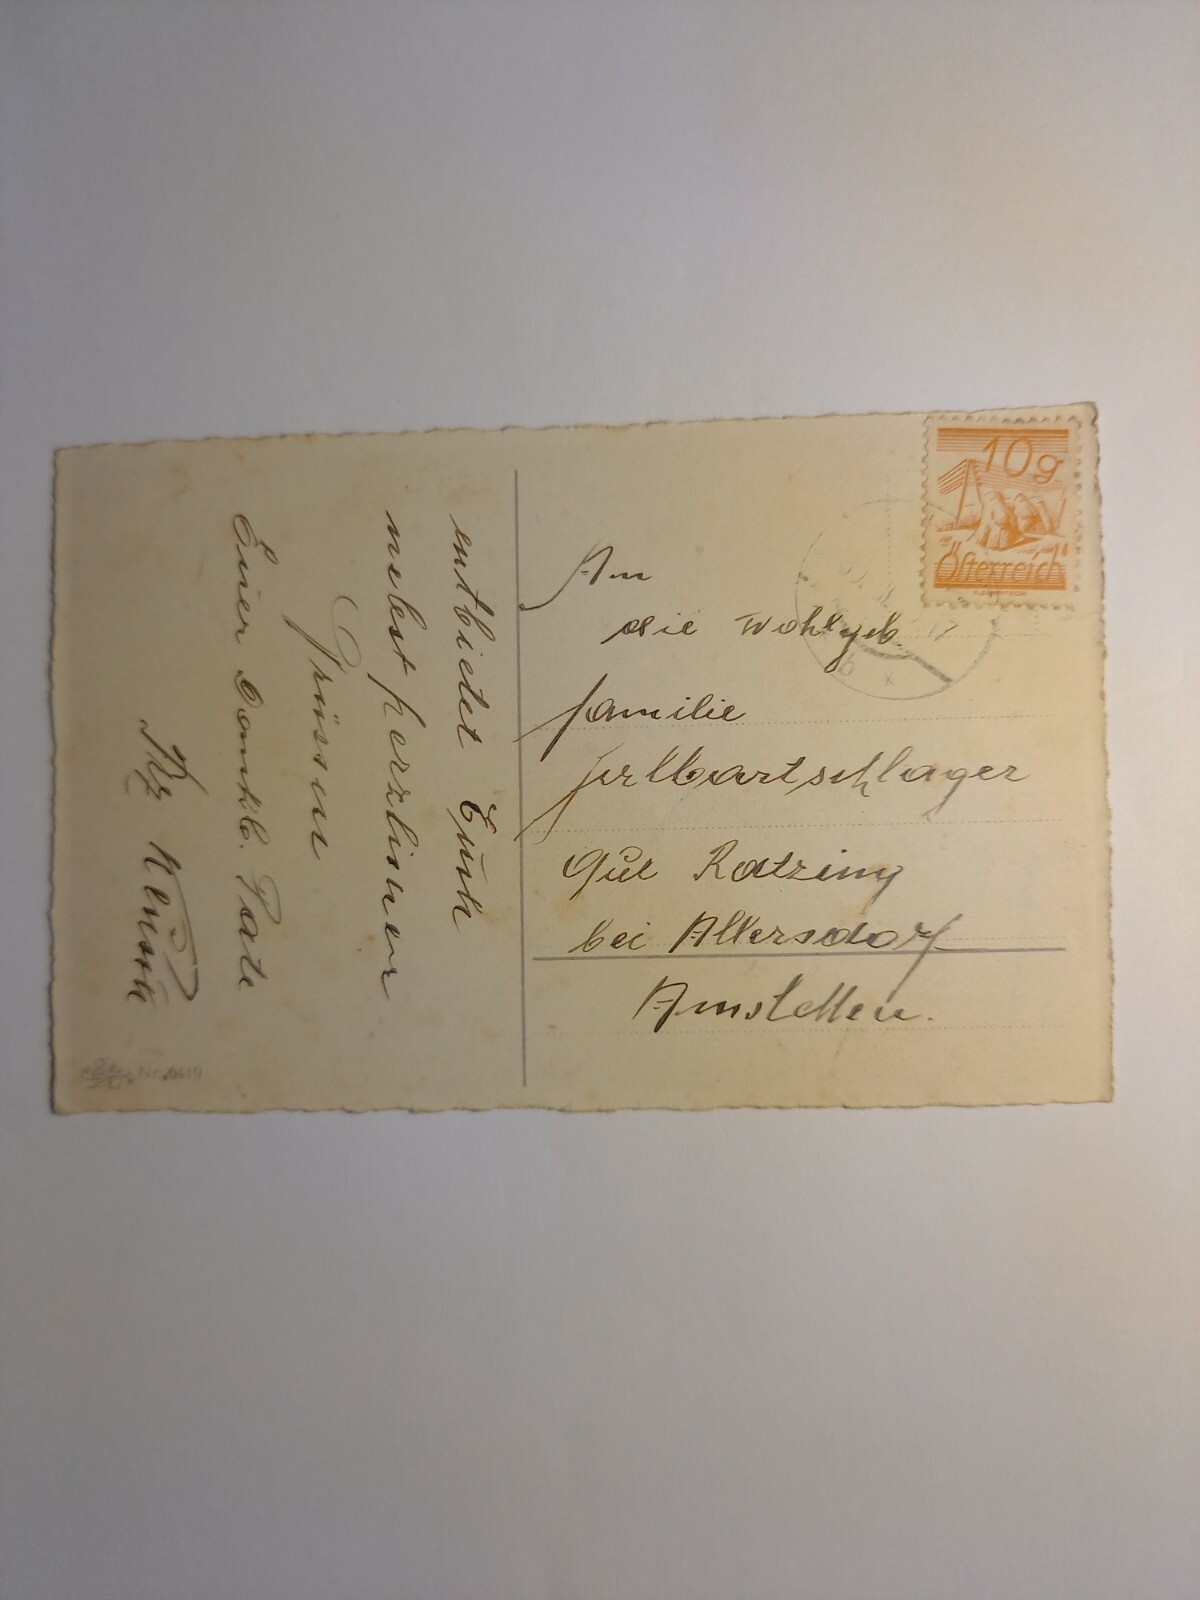 entbietet Euch
nebst herzlichen
Grüssen
Euer Dankb. Pate
An
die Wohlgeb.
Familie
Gut Ratzing
bei Allersdorf
Amstetten.
10g
Österreich
Nr. 6419